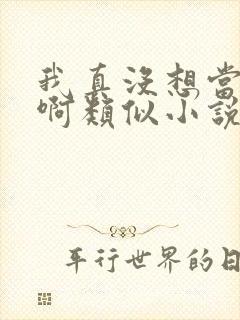 我真沒想當
啊類似小說
平行世界的日